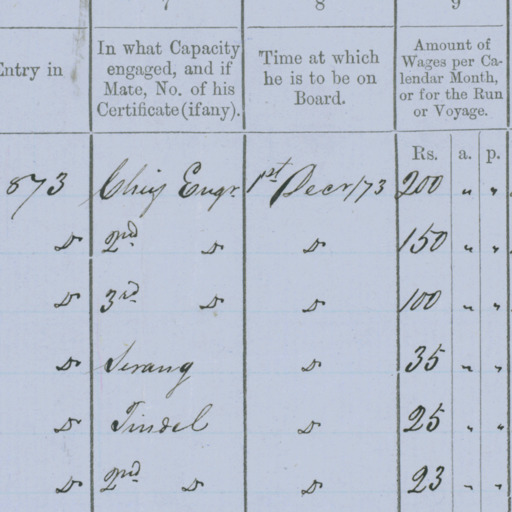 7 8 9
Entry in
In what Capacity engaged, and if Mate, No. of his Certificate (if any).
Time at which he is to be on Board.
Amount of Wages per Calendar Month, or for the Run or Voyage.
Rs. a. p.
873 Chief Engr. 1st Decr/73 200 " "
Do 2nd Do Do 150 " "
Do 3rd Do Do 100 " "
Do Serang Do 35 " "
Do Tindel Do 25 " "
Do 2nd Do Do 23 " "